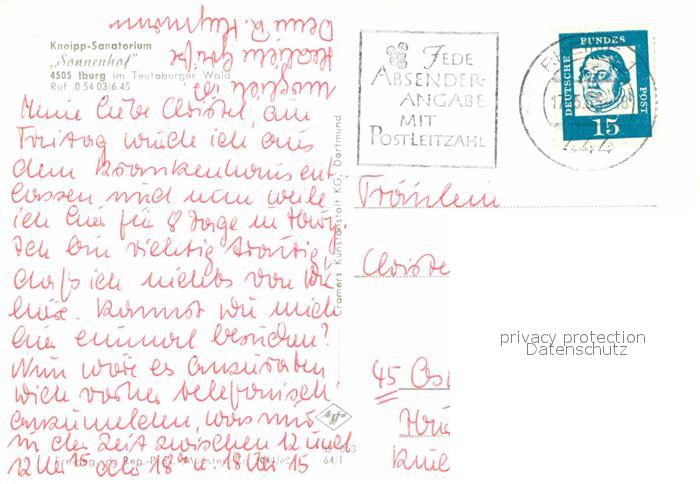 Kneipp-Sanatorium
„Sonnenhof"
4505 Iburg im Teutoburger Wald
Ruf 0 54 03/6 45
Meine liebe Christel, am
Freitag wurde ich aus
dem Krankenhaus ent-
lassen und nun weile
ich hier für 8 Tage in
Ich bin richtig traurig,
daß ich nichts von Dir
höre. Kannst Du mich
hier einmal besuchen?
Nun wäre es anzuraten
Dich vorher telefonisch
anzumelden, was nur
in der Zeit zwischen 12 und
12 Uhr 15 oder 18 u. 18 Uhr 15
möglich ist.
Herzliche Grüße
Deine R.
Cramers Kunstanstalt KG, Dortmund
JEDE
ABSENDER-
ANGABE
MIT
POSTLEITZAHL
DEUTSCHE BUNDESPOST
15
444
Fräulein
Christe
45 Os
privacy protection
Datenschutz
64/1